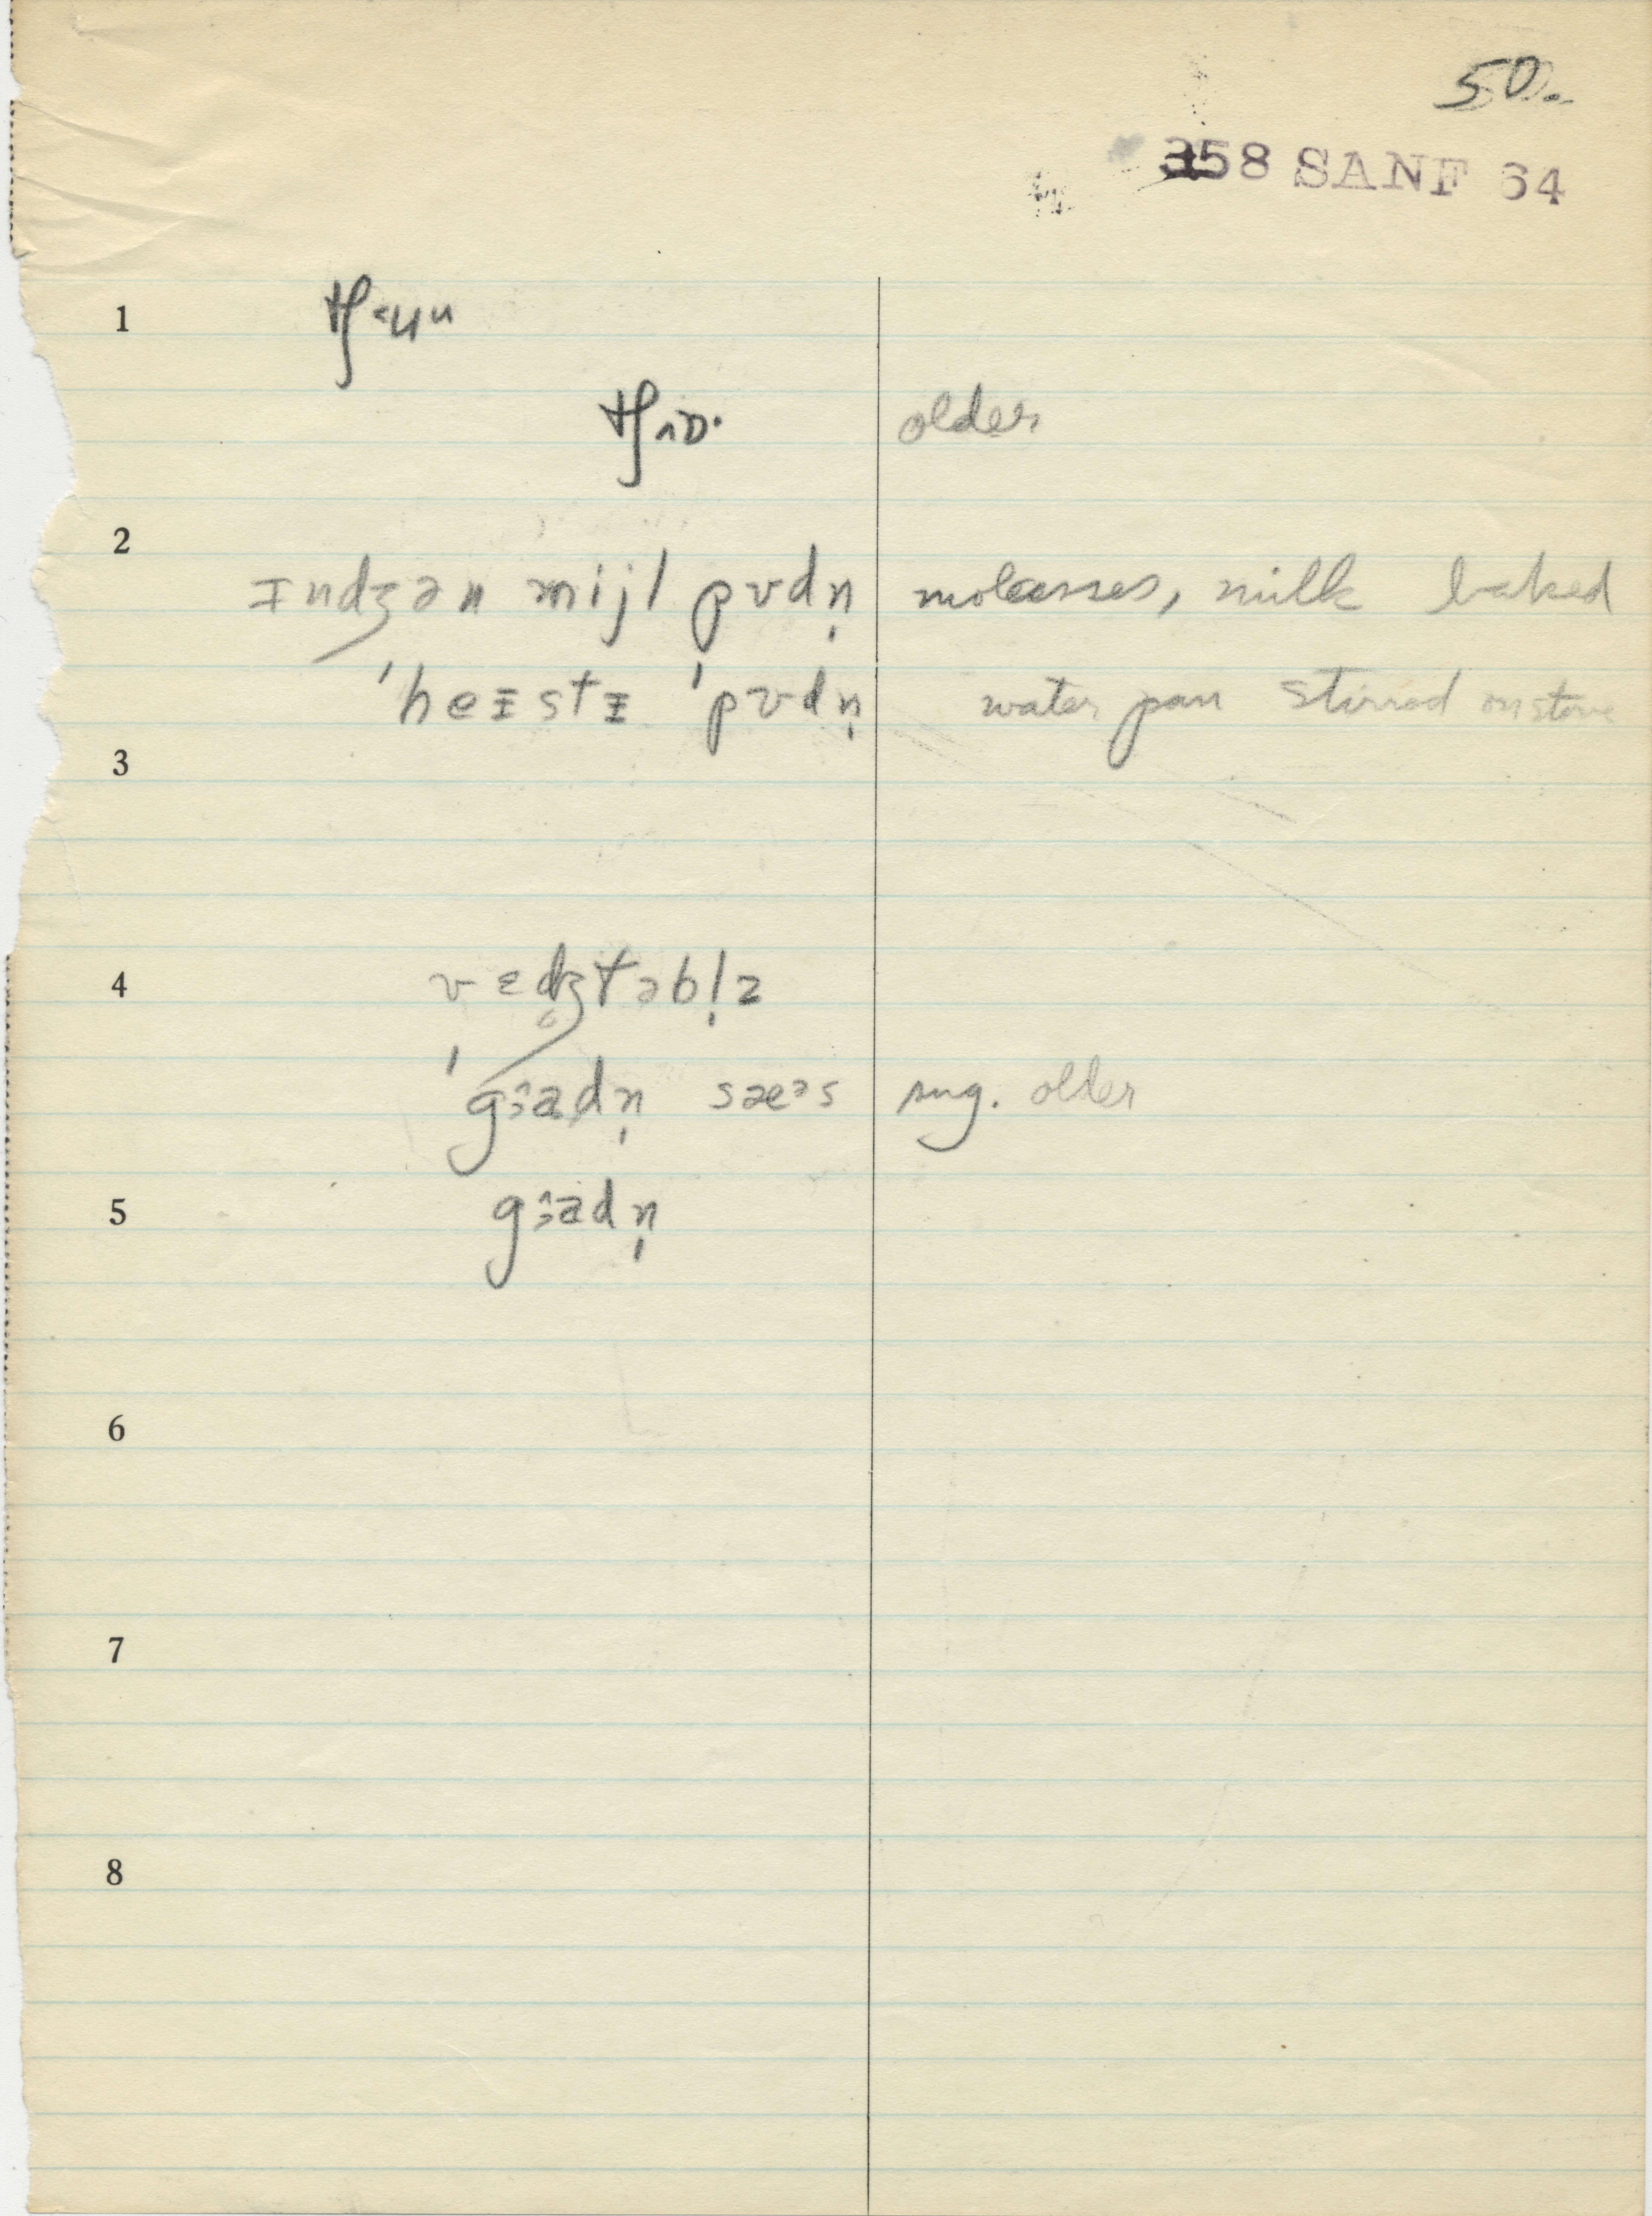 50.
358 SANF 64
1 tʃ˂ʉu
tʃ˄ɒ· older
2
ɪndʒən mijl pʊdn̩ molasses, milk baked
ˈheɪstɪ ˈpʊdn̩ water pan stirred on stove
3
4 vɛdʒtəbl̩z
ˈgɜadn̩ sæᵊs sug. older
5 gɜadn̩
6
7
8